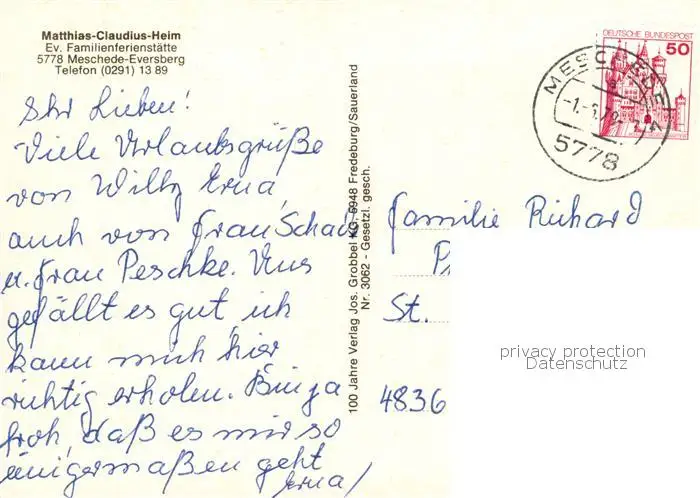 Matthias-Claudius-Heim
Ev. Familienferienstätte
5778 Meschede-Eversberg
Telefon (0291) 13 89
Ihr Lieben!
Viele Urlaubsgrüße
von Willy Erna,
auch von Frau Schaub
u. Frau Peschke. Uns
gefällt es gut, ich
kann mich hier
richtig erholen. Bin ja
froh, daß es mir so
einigermaßen geht
Erna
100 Jahre Verlag Jos. Grobbel KG, 5948 Fredeburg/Sauerland
Nr. 3062 - Gesetzl. gesch.
DEUTSCHE BUNDESPOST
50
MESCHEDE
5778
Familie Richard
St.
4836
privacy protection
Datenschutz